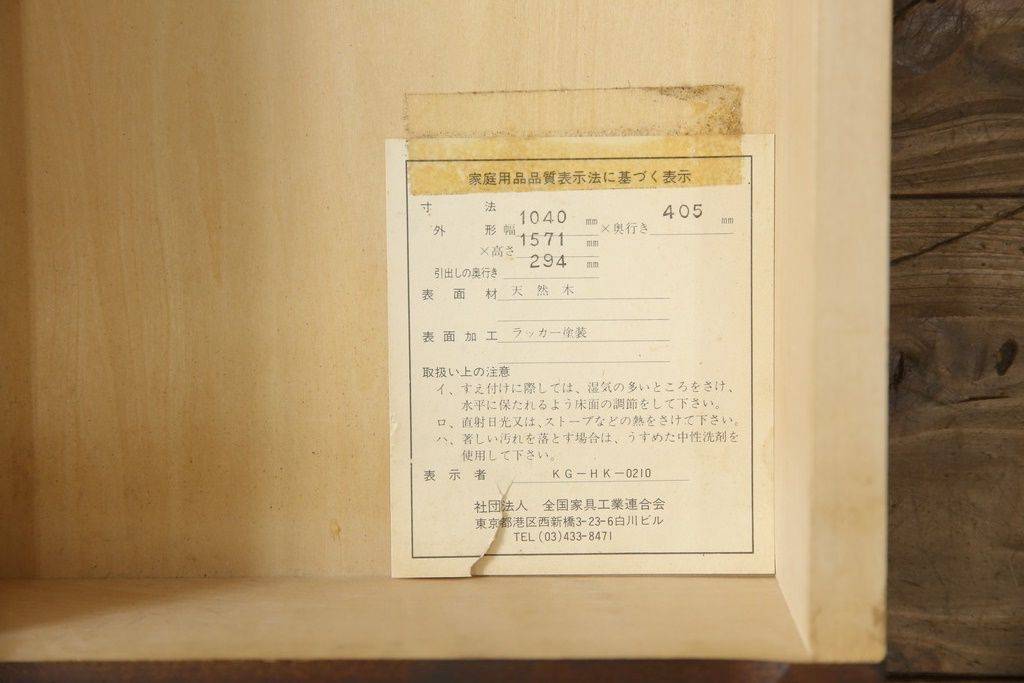 家庭用品品質表示法に基づく表示
寸法
外形 幅 1040 mm ×奥行き 405 mm
×高さ 1571 mm
引出しの奥行き 294 mm
表面材 天然木
表面加工 ラッカー塗装
取扱い上の注意
イ、すえ付けに際しては、湿気の多いところをさけ、
水平に保たれるよう床面の調節をして下さい。
ロ、直射日光又は、ストーブなどの熱をさけて下さい。
ハ、著しい汚れを落とす場合は、うすめた中性洗剤を
使用して下さい。
表示者 KG-HK-0210
社団法人 全国家具工業連合会
東京都港区西新橋3-23-6白川ビル
TEL(03)433-8471